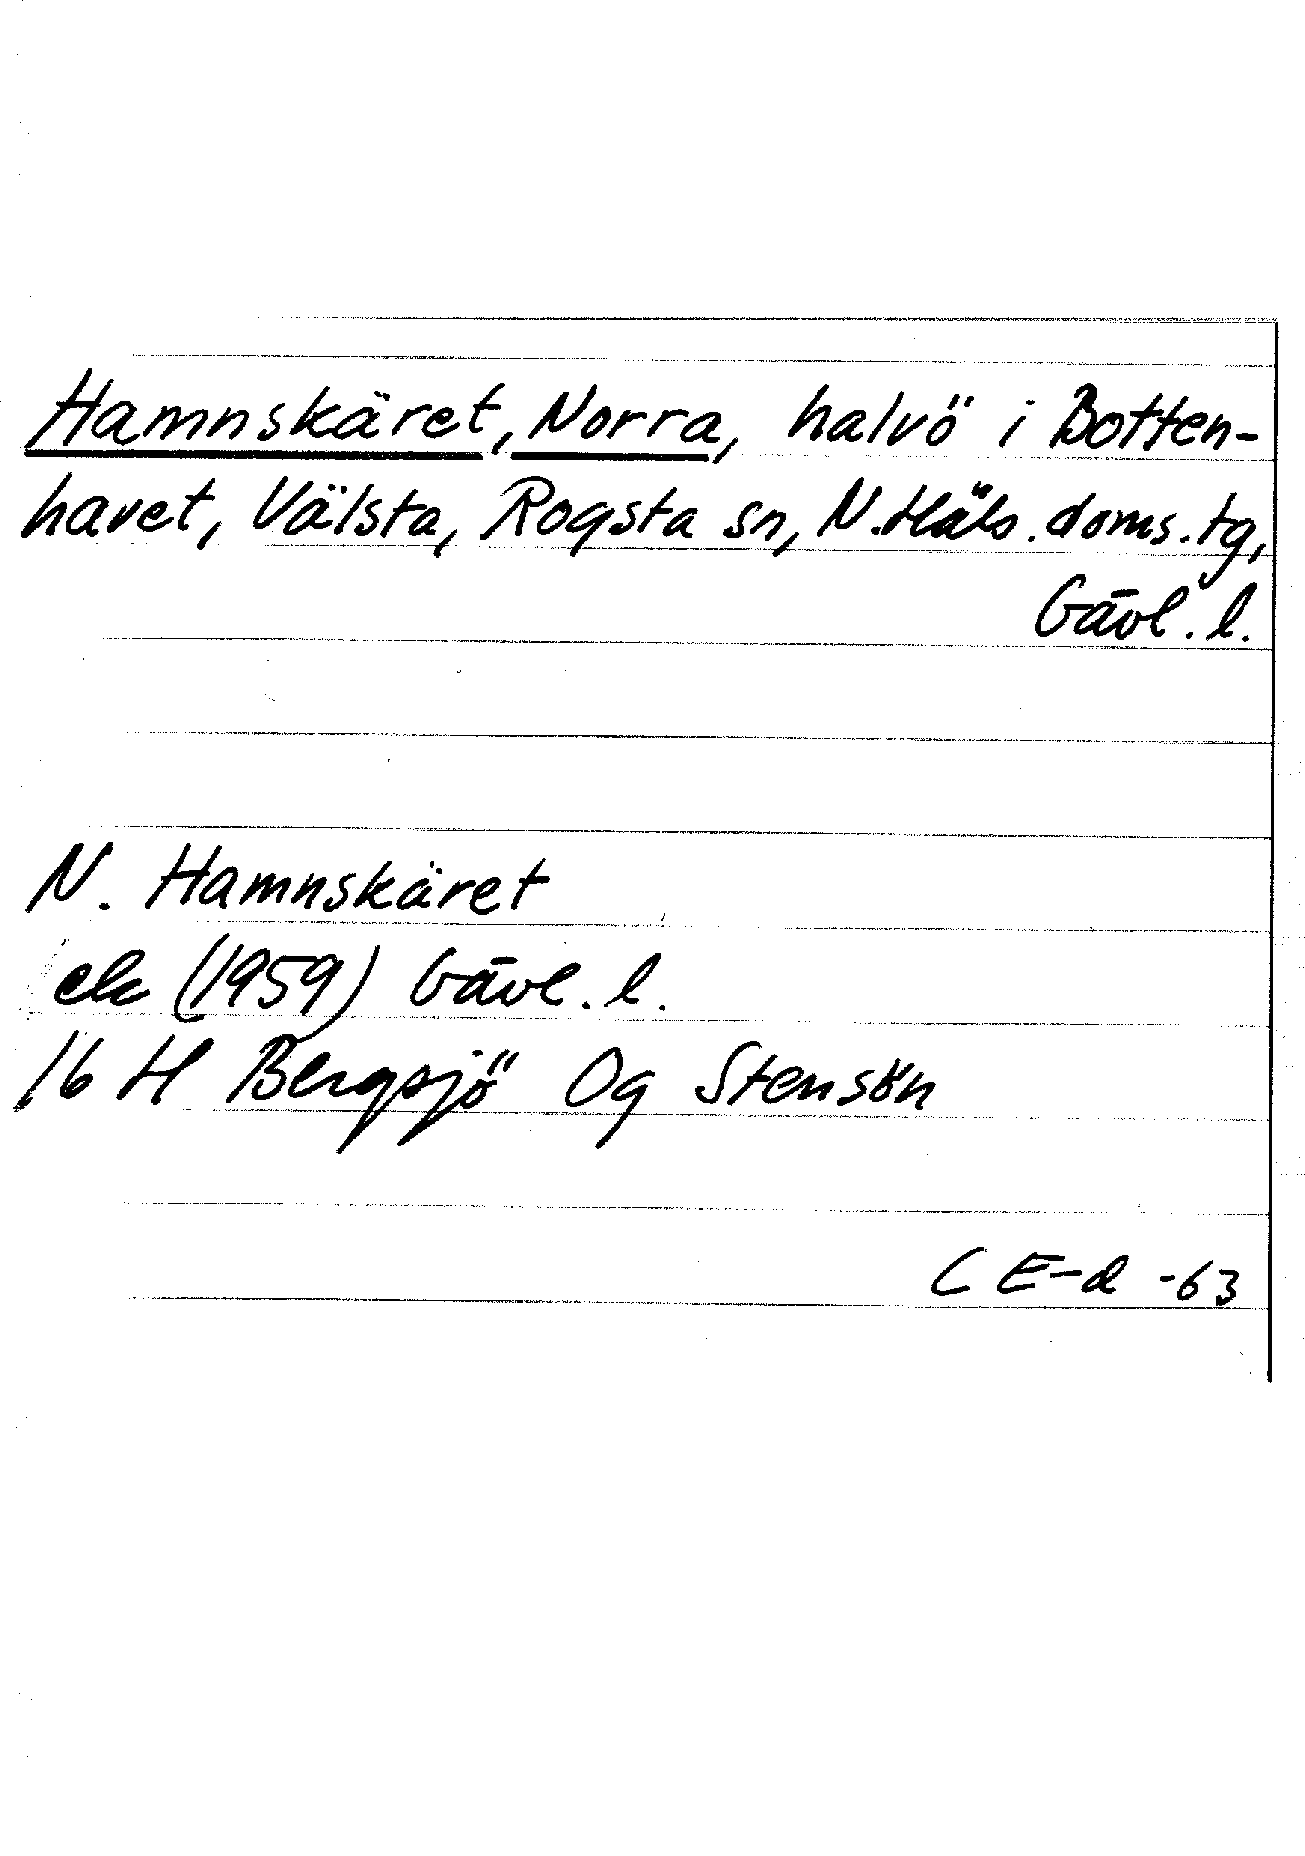 Hamnskäret, Norra, halvö i Botten-
havet, Välsta, Rogsta sn, N.Häls. doms. tg,
Gävl. l.
N. Hamnskäret
ek (1959) Gävl. l.
16 H Bergsjö Og Stensön
C E-d -63